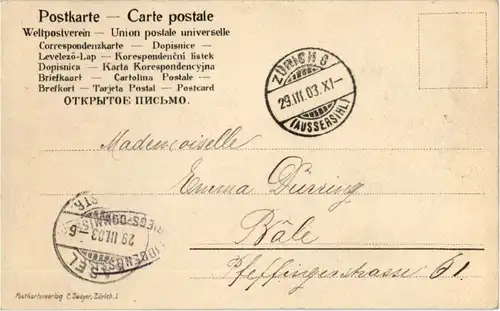 Postkarte — Carte postale
Weltpostverein — Union postale universelle
Correspondenzkarte — Dopisnice —
Levelező-Lap — Korespondenční listek
Dopisnica — Karta Korespondencyjna
Briefkaart — Cartolina Postale —
Brefkort — Tarjeta Postal — Postcard
ОТКРЫТОЕ ПИСЬМО.
ZÜRICH 6
29.III.03.XI—
(AUSSERSIHL)
Mademoiselle
Emma Dürring
Bâle
Pfeffingerstrasse 61.
BASEL
29 III.03 — 6
Postkartenverlag C. Zwayer, Zürich. I.